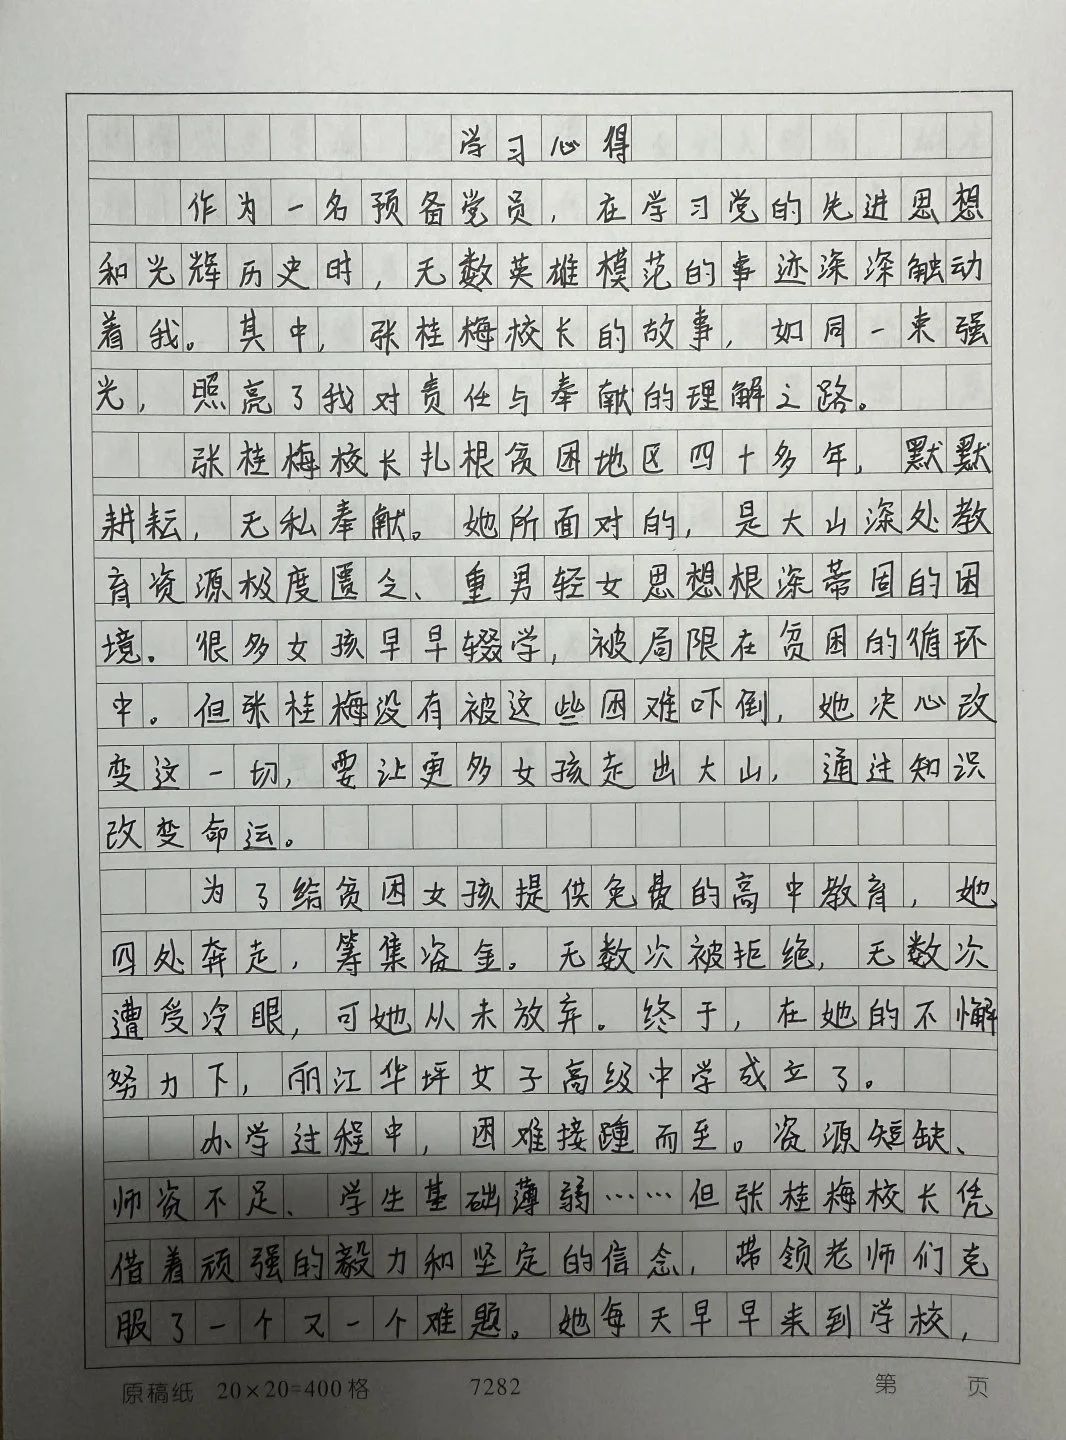 学习心得
作为一名预备党员，在学习党的先进思想
和光辉历史时，无数英雄模范的事迹深深触动
着我。其中，张桂梅校长的故事，如同一束强
光，照亮了我对责任与奉献的理解之路。
张桂梅校长扎根贫困地区四十多年，默默
耕耘，无私奉献。她所面对的，是大山深处教
育资源极度匮乏、重男轻女思想根深蒂固的困
境。很多女孩早早辍学，被局限在贫困的循环
中。但张桂梅没有被这些困难吓倒，她决心改
变这一切，要让更多女孩走出大山，通过知识
改变命运。
为了给贫困女孩提供免费的高中教育，她
四处奔走，筹集资金。无数次被拒绝，无数次
遭受冷眼，可她从未放弃。终于，在她的不懈
努力下，丽江华坪女子高级中学成立了。
办学过程中，困难接踵而至。资源短缺、
师资不足、学生基础薄弱……但张桂梅校长凭
借着顽强的毅力和坚定的信念，带领老师们克
服了一个又一个难题。她每天早早来到学校，
原稿纸 20×20=400格 7282 第 页